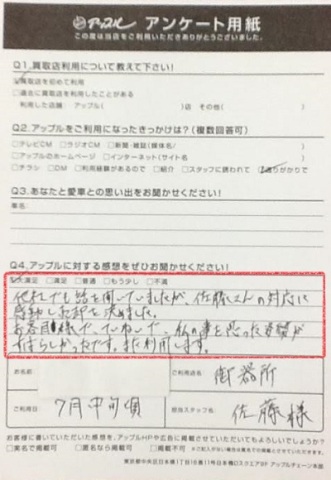 アップル アンケート用紙
この度は当店をご利用いただきありがとうございました。
Q1.買取店利用について教えて下さい!
☑買取店を初めて利用
□過去に買取店を利用したことがある
利用した店舗: アップル( )店 その他( )
Q2.アップルをご利用になったきっかけは?(複数回答可)
□テレビCM □ラジオCM □新聞・雑誌(媒体名/ )
□アップルのホームページ □インターネット(サイト名 )
□チラシ □DM □利用経験があるので □紹介 □スタッフに誘われて ☑通りがかりで
Q3.あなたと愛車との思い出をお聞かせください!
車名:
Q4.アップルに対する感想をぜひお聞かせください!
☑大満足 □満足 □普通 □もう少し □不満
他社でも話を聞いていましたが、佐藤さんの対応に
感動し売却を決めました。
お客目様で、ていねいで、私の事を思った姿勢が
すばらしかったです。また利用します。
お名前
ご利用店名
御器所
ご利用日
7月中旬頃
担当スタッフ名
佐藤様
お客様に書いていただいた感想を、アップルHPや広告に掲載させていただいてもよろしいでしょうか?
□実名で掲載可 □匿名なら掲載可 □掲載不可
東京都中央区日本橋1丁目16番11号日本橋Dスクエア3F アップルチェーン本部